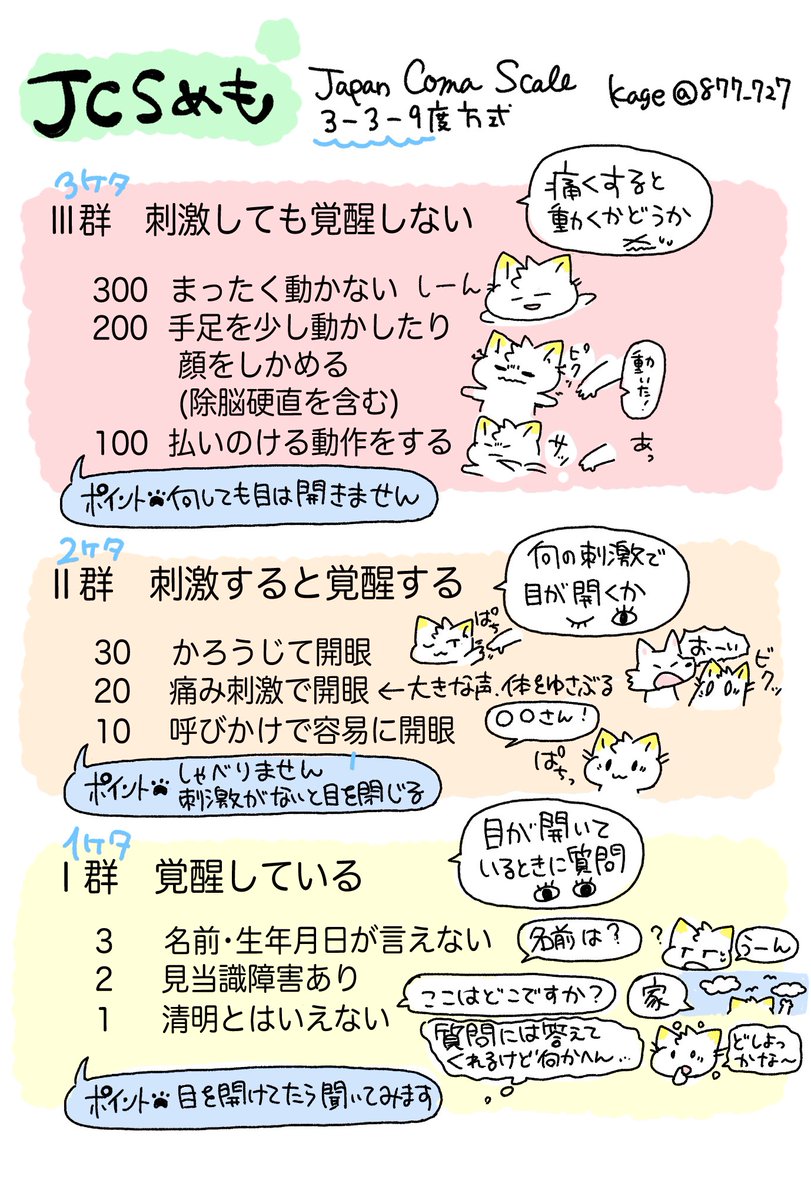 JCSめも
Japan Coma Scale
3-3-9度方式
kage@877_727
3ケタ
III群 刺激しても覚醒しない
痛くすると
動くかどうか
300 まったく動かない
しーん
200 手足を少し動かしたり
顔をしかめる
(除脳硬直を含む)
ピクッ
動いた!
100 払いのける動作をする
サッ
あっ
ポイント 何しても目は開きません
2ケタ
II群 刺激すると覚醒する
何の刺激で
目が開くか
30 かろうじて開眼
ぱち
20 痛み刺激で開眼
←大きな声、体をゆさぶる
おーい
ビクッ
10 呼びかけで容易に開眼
○○さん!
ぱちっ
ポイント しゃべりません
刺激がないと目を閉じる
1ケタ
I群 覚醒している
目が開いて
いるときに質問
3 名前・生年月日が言えない
名前は?
?
うーん
2 見当識障害あり
ここはどこですか?
家
1 清明とはいえない
質問には答えて
くれるけど何かへん…
どしよっ
かな~
ポイント 目を開けてたら聞いてみます